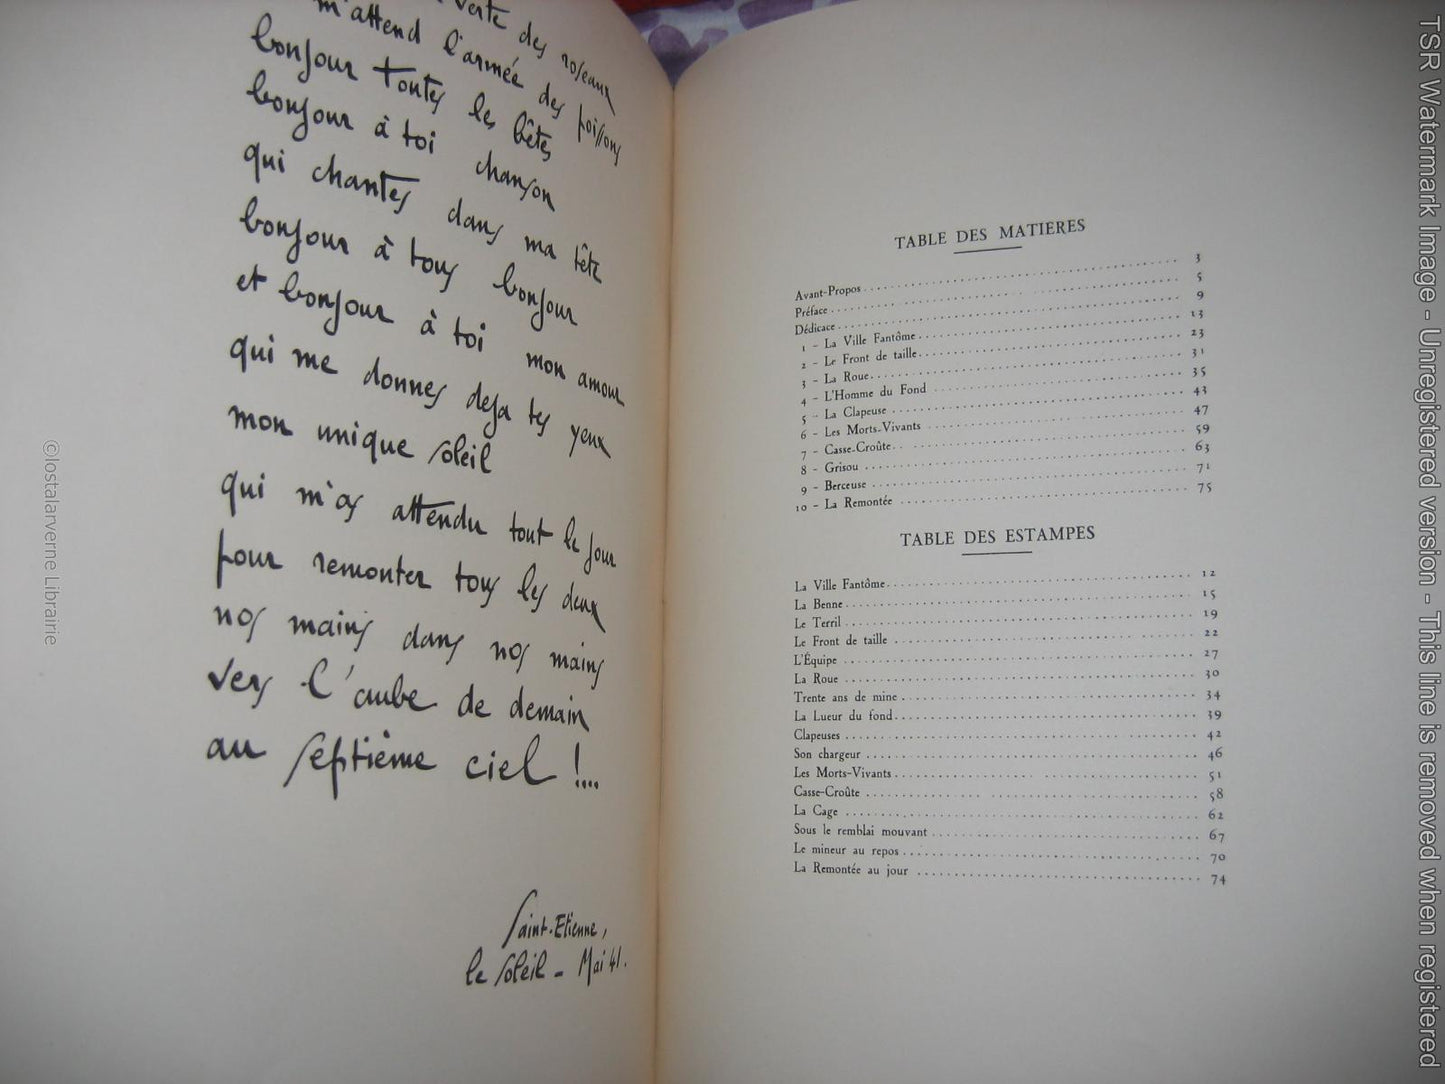 verte des roseaux
m'attend l'armée des poissons
bonjour toutes les bêtes
bonjour à toi chanson
qui chantes dans ma tête
bonjour à tous bonjour
et bonjour à toi mon amour
qui me donnes deja tes yeux
mon unique soleil
qui m'as attendu tout le jour
pour remonter tous les deux
nos mains dans nos mains
vers l'aube de demain
au septième ciel !....
Saint-Etienne,
le soleil - Mai 41.
TABLE DES MATIERES
Avant-Propos 3
Préface 5
Dédicace 9
1 - La Ville Fantôme 13
2 - Le Front de taille 23
3 - La Roue 31
4 - L'Homme du Fond 35
5 - La Clapeuse 43
6 - Les Morts-Vivants 47
7 - Casse-Croûte 59
8 - Grisou 63
9 - Berceuse 71
10 - La Remontée 75
TABLE DES ESTAMPES
La Ville Fantôme 12
La Benne 15
Le Terril 19
Le Front de taille 22
L'Équipe 27
La Roue 30
Trente ans de mine 34
La Lueur du fond 39
Clapeuses 42
Son chargeur 46
Les Morts-Vivants 51
Casse-Croûte 58
La Cage 62
Sous le remblai mouvant 67
Le mineur au repos 70
La Remontée au jour 74
©lostalarverne Librairie
TSR Watermark Image - Unregistered version - This line is removed when registered